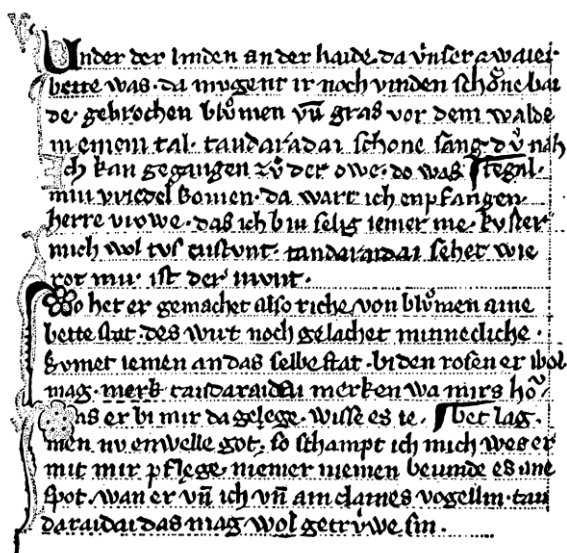 Under der linden an der haide. da vnser zwaier
bette was. da mugent ir noch vinden schone bai
de. gebrochen blůmen vn̄ gras vor dem walde
in einem tal. tandaradai schone sang dv̊ nah
Ich kan gegangen zv̊ der owe. do was tegal.
min vriedel komen. da wart ich enpfangen.
herre vrowe. das ich bin selig iemer me. kvster
mich wol tvsentstvnt. tandaradai sehet wie
rot mir ist der mvnt.
Do het er gemachet also riche, von blůmen aine
bette stat. des wirt noch gelachet minnecliche.
kvmet iemen an das selbe stat. bi den rosen er wol
mag. merk tandaradai merken wa mirs hō
Das er bi mir da gelege. wisse es ie. bet lag.
men. nv enwelle got. so schampt ich mich wes er
mit mir pflege. niemer niemen bevinde es ane
spot. wan er vn̄ ich vn̄ ain claines vogellin. tan
daraidai das mag wol getrvwe sin.